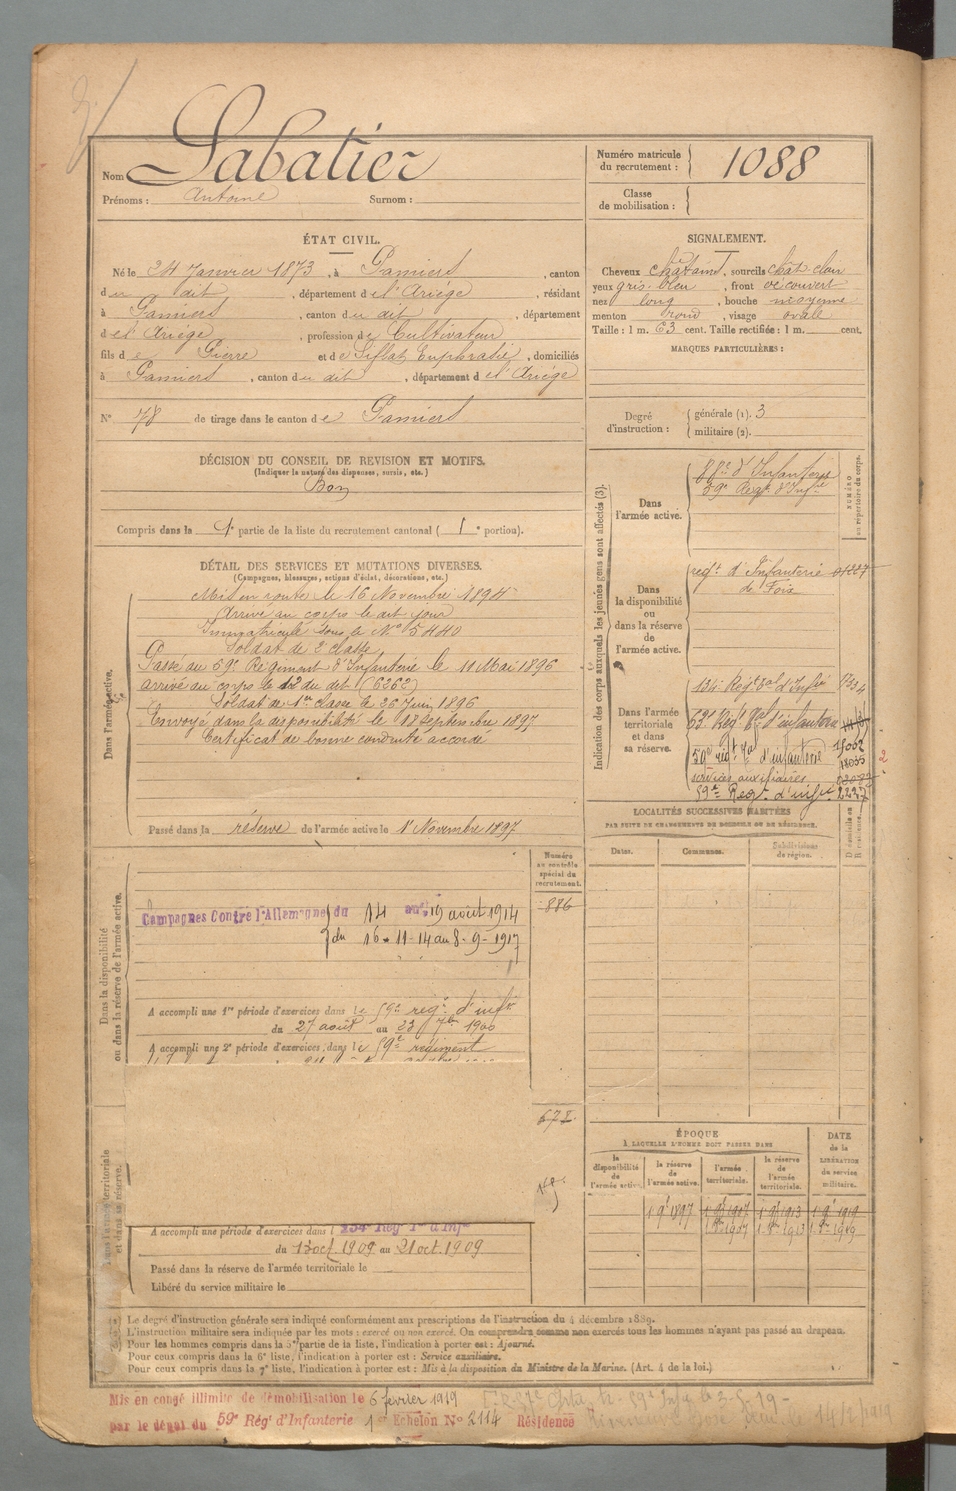 Nom Sabatier
Prénoms : Antoine Surnom :
Numéro matricule du recrutement : 1088
Classe de mobilisation :
ÉTAT CIVIL.
Né le 24 Janvier 1873, à Pamiers, canton
du dit, département de l'Ariège, résidant
à Pamiers, canton du dit, département
de l'Ariège, profession de Cultivateur
fils de Pierre et de Siflat Euphrasie, domiciliés
à Pamiers, canton du dit, département de l'Ariège
N° 78 de tirage dans le canton de Pamiers
SIGNALEMENT.
Cheveux châtains, sourcils chât. clair
yeux gris-bleu, front découvert
nez long, bouche moyenne
menton rond, visage ovale
Taille : 1 m. 63 cent. Taille rectifiée : 1 m. cent.
MARQUES PARTICULIÈRES :
Degré d'instruction : générale (1). 3
militaire (2).
DÉCISION DU CONSEIL DE REVISION ET MOTIFS.
(Indiquer la nature des dispenses, sursis, etc.)
Bon
Compris dans la 1e partie de la liste du recrutement cantonal ( 1e portion).
DÉTAIL DES SERVICES ET MUTATIONS DIVERSES.
(Campagnes, blessures, actions d'éclat, décorations, etc.)
Dans l'armée active.
Mis en route le 16 Novembre 1894
Arrivé au corps le dit jour
Immatriculé sous le N° 5440
Soldat de 2e classe
Passé au 59e Régiment d'Infanterie le 11 Mai 1896
arrivé au corps le 12 du dit (6262)
Soldat de 1re classe le 26 Juin 1896
Envoyé dans la disponibilité le 18 septembre 1897
Certificat de bonne conduite accordé
Passé dans la réserve de l'armée active le 1er Novembre 1897
Indication des corps auxquels les jeunes gens sont affectés (3).
NUMÉRO au répertoire du corps.
Dans l'armée active.
88e d'Infanterie
59e Regt d'Infie
Dans la disponibilité ou dans la réserve de l'armée active.
regt d'Infanterie
de Foix
Dans l'armée territoriale et dans sa réserve.
134 Regt Tal d'Infie
63e Regt Tal d'infanterie
59e regt Tal d'infanterie
services auxiliaires
59e Regt d'infie 2227
LOCALITÉS SUCCESSIVES HABITÉES
PAR SUITE DE CHANGEMENTS DE DOMICILE OU DE RÉSIDENCE.
Dates. Communes. Subdivisions de région. D domicile ou R résidence.
Dans la disponibilité ou dans la réserve de l'armée active.
Numéro au contrôle spécial du recrutement.
886
Campagnes Contre l'Allemagne du 14 au 19 août 1914
du 16-11-14 au 8-9-1917
A accompli une 1re période d'exercices dans le 59e regt d'infie
du 27 août au 23 7bre 1900
A accompli une 2e période d'exercices, dans le 59e régiment
672
Dans l'armée territoriale et dans sa réserve.
A accompli une période d'exercices dans l
du 13 oct. 1909 au 21 oct. 1909
Passé dans la réserve de l'armée territoriale le
Libéré du service militaire le
ÉPOQUE
À LAQUELLE L'HOMME DOIT PASSER DANS
DATE de la LIBÉRATION du service militaire.
la disponibilité de l'armée active. la réserve de l'armée active. l'armée territoriale. la réserve de l'armée territoriale.
1 9bre 1897 1 9bre 1917 1 9bre 1913 1 9bre 1919
1 9bre 1907 1 9bre 1913 1 9bre 1919
Le degré d'instruction générale sera indiqué conformément aux prescriptions de l'instruction du 4 décembre 1889.
L'instruction militaire sera indiquée par les mots : exercé ou non exercé. On comprendra comme non exercés tous les hommes n'ayant pas passé au drapeau.
Pour les hommes compris dans la 5e partie de la liste, l'indication à porter est : Ajourné.
Pour ceux compris dans la 6e liste, l'indication à porter est : Service auxiliaire.
Pour ceux compris dans la 7e liste, l'indication à porter est : Mis à la disposition du Ministre de la Marine. (Art. 4 de la loi.)
Mis en congé illimité de démobilisation le 6 fevrier 1919
par le dépôt du 59e Rég' d'Infanterie 1er Echelon N° 2114 Résidence